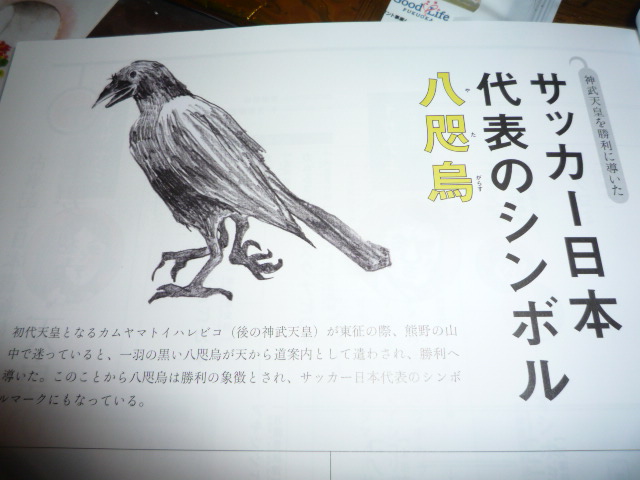 Good Life
FUKUOKA
神武天皇を勝利に導いた
サッカー日本
代表のシンボル
八咫烏
や た がらす
初代天皇となるカムヤマトイハレビコ（後の神武天皇）が東征の際、熊野の山
中で迷っていると、一羽の黒い八咫烏が天から道案内として遣わされ、勝利へ
導いた。このことから八咫烏は勝利の象徴とされ、サッカー日本代表のシンボ
ルマークにもなっている。